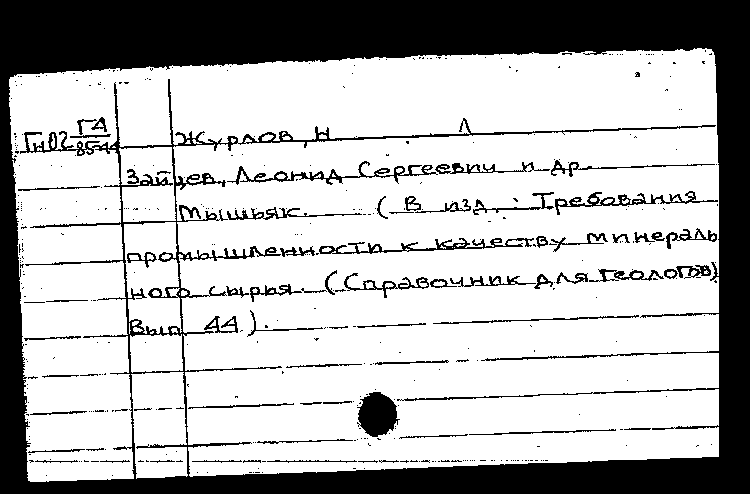 ГД
Гн02 85-44 Журлов, Н Л
Зайцев, Леонид Сергеевич и др.
Мышьяк. (В изд.: Требования
промышленности к качеству минераль
ного сырья. (Справочник для геологов)
Вып. 44).